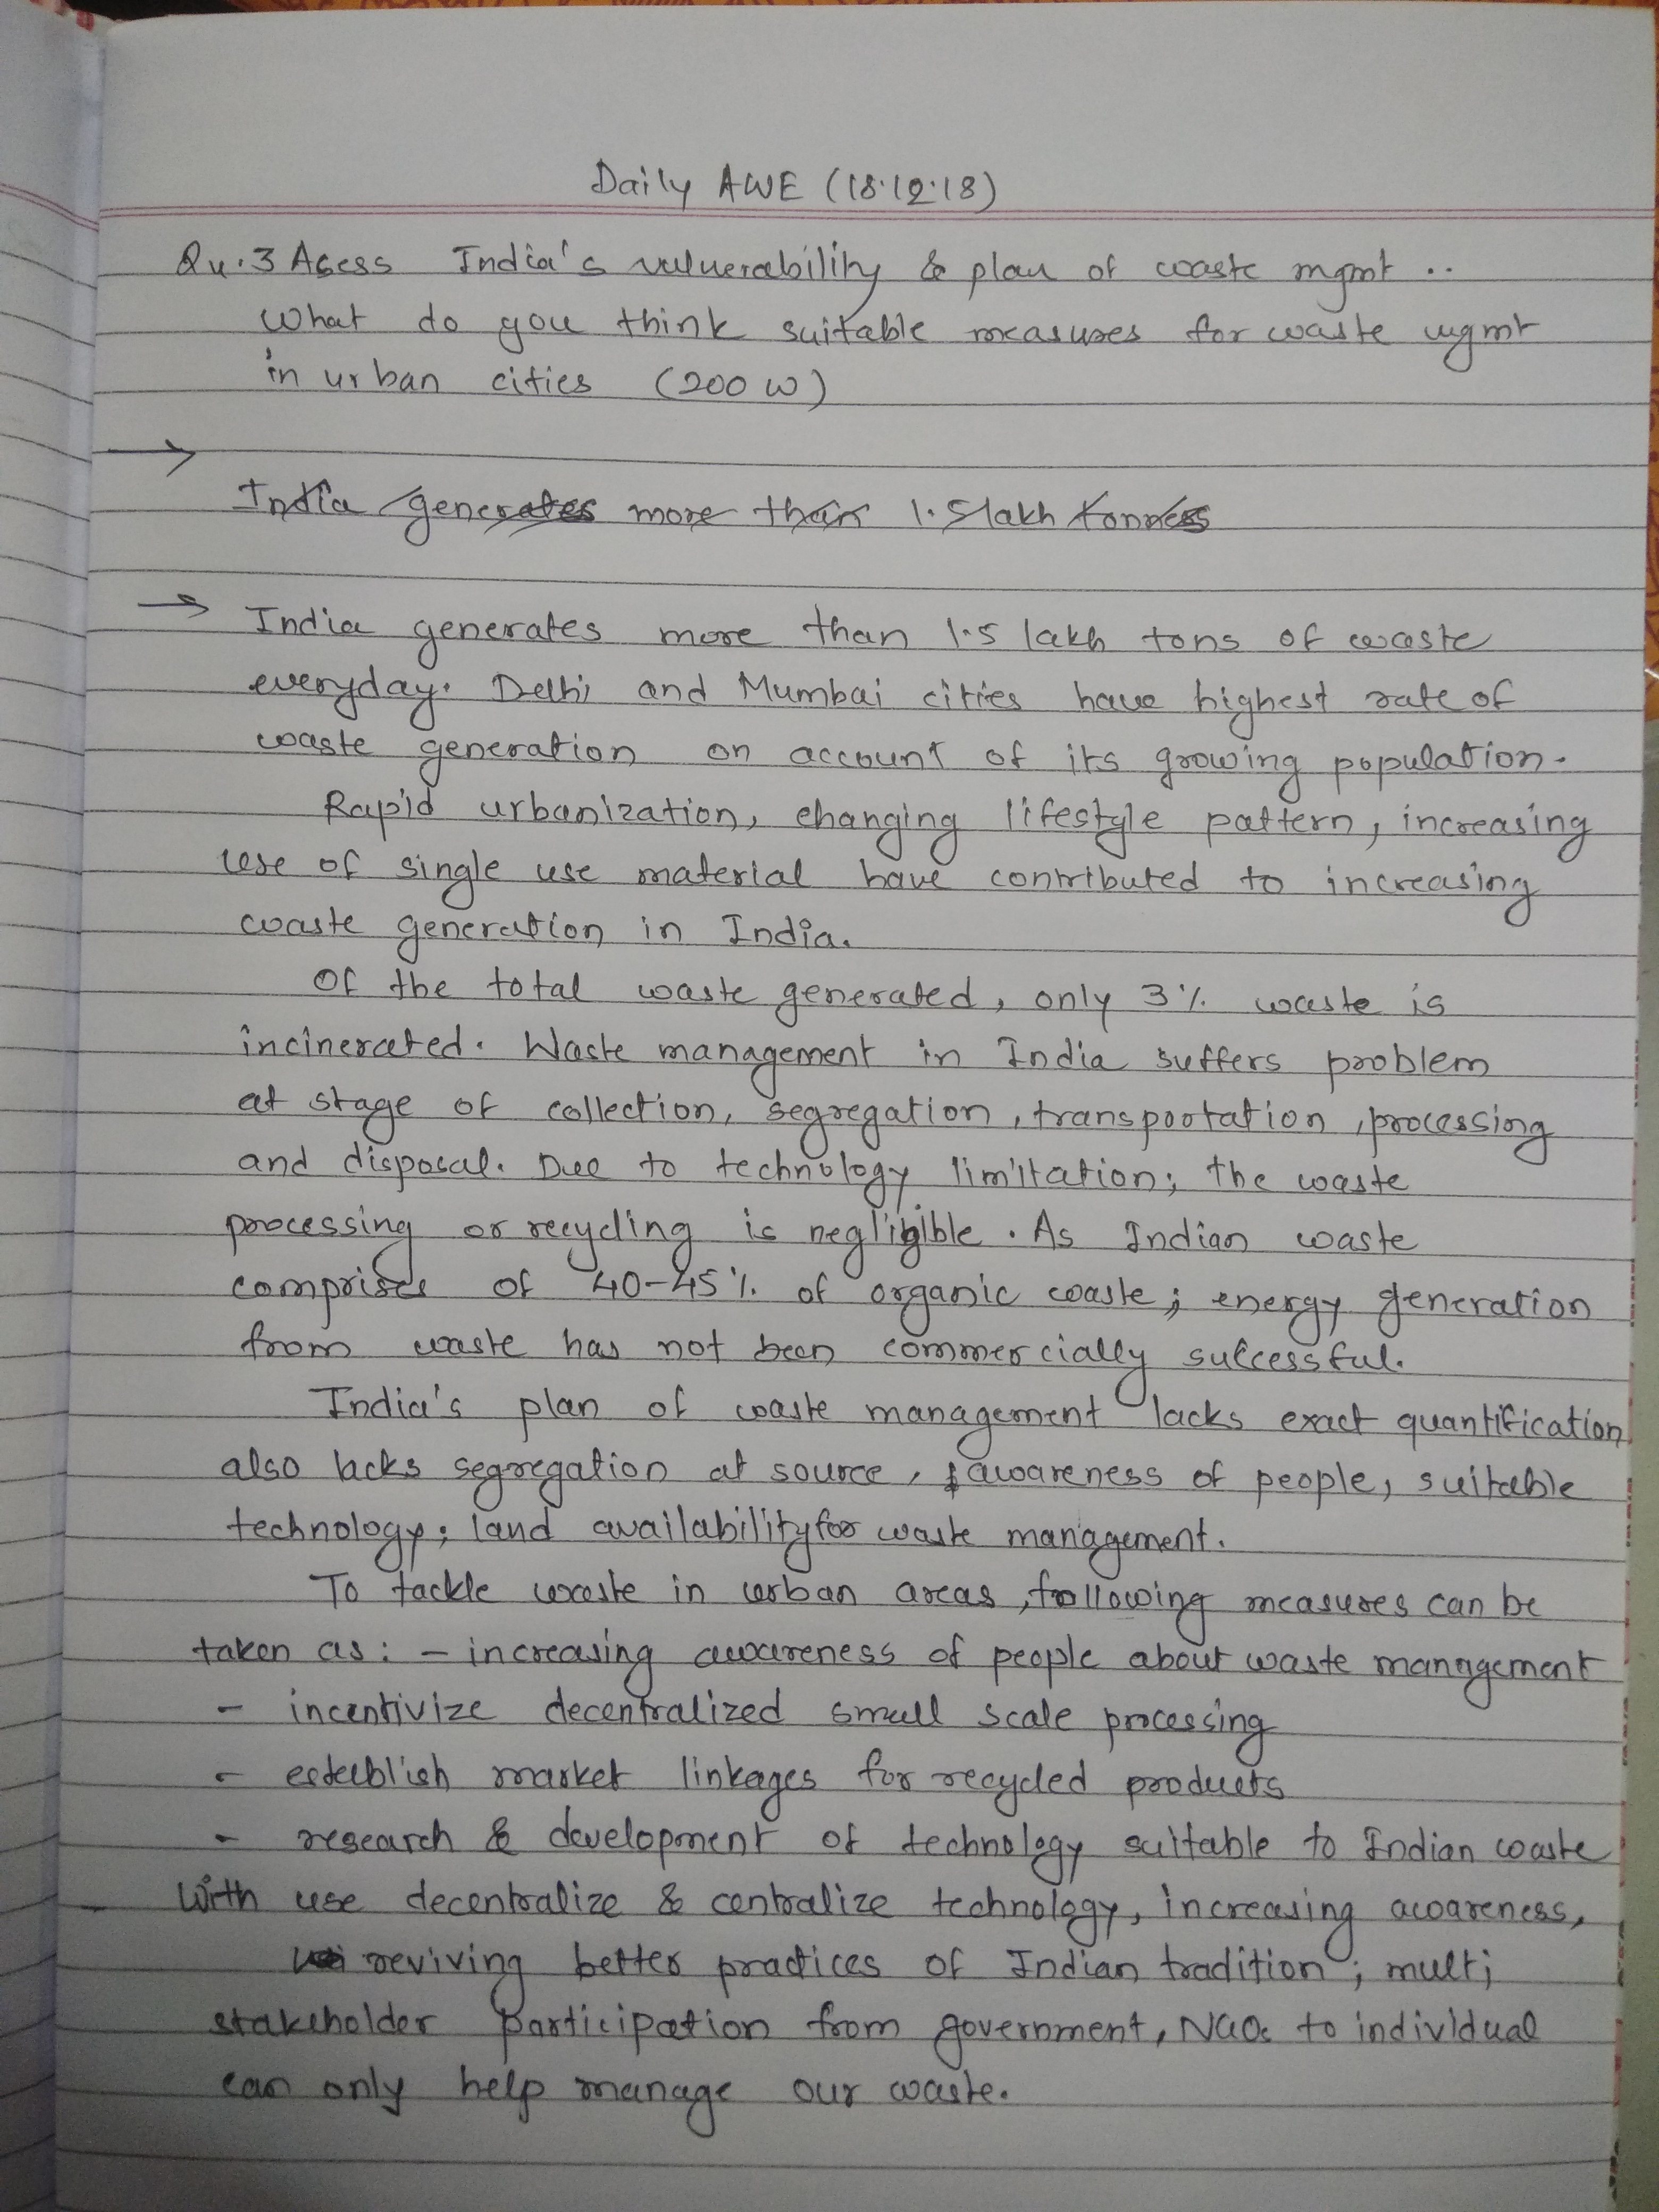 Daily AWE (18.12.18)
Qu.3 Asess India's vulnerability & plan of waste mgmt ..
What do you think suitable measures for waste mgmt
in urban cities (200 w)
→
India generates more than 1.5 lakh tonnes
→ India generates more than 1.5 lakh tons of waste
everyday. Delhi and Mumbai cities have highest rate of
waste generation on account of its growing population.
Rapid urbanization, changing lifestyle pattern, increasing
use of single use material have contributed to increasing
waste generation in India.
Of the total waste generated, only 3% waste is
incinerated. Waste management in India suffers problem
at stage of collection, segregation, transportation, processing
and disposal. Due to technology limitation; the waste
processing or recycling is negligible. As Indian waste
comprises of 40-45% of organic waste; energy generation
from waste has not been commercially successful.
India's plan of waste management lacks exact quantification
also lacks segregation at source, awareness of people, suitable
technology, land availability for waste management.
To tackle waste in urban areas, following measures can be
taken as: - increasing awareness of people about waste management
- incentivize decentralized small scale processing
- establish market linkages for recycled products
- research & development of technology suitable to Indian waste
With use decentralize & centralize technology, increasing awareness,
reviving better practices of Indian tradition; multi
stakeholder participation from government, NGOs to individual
can only help manage our waste.